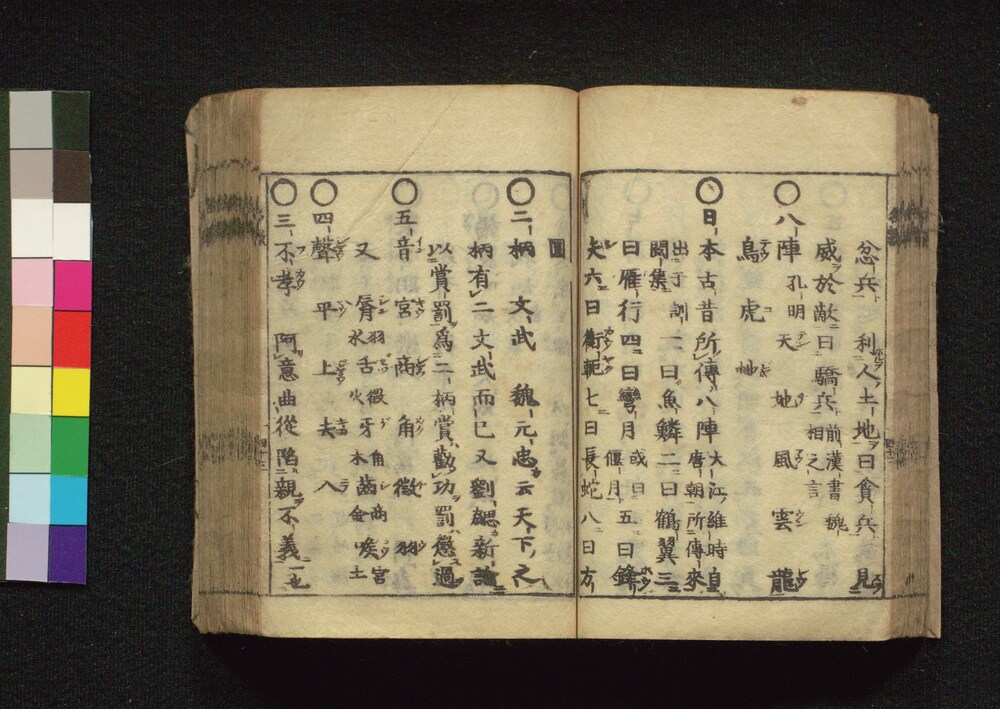 忿兵 利人土地曰貪兵見
威於敵曰驕兵 前漢書魏相之言
○八陣 孔明 天 地 風 雲 龍
鳥 虎 蛇
○日本古昔所傳八陣 大江維時自唐朝所傳來
出于訓閱集 一曰魚鱗二曰鶴翼三
曰雁行四曰彎月 或曰偃月 五曰鋒
矢六曰衡軛七曰長蛇八曰方
圓
○二柄 文 武 魏元忠云天下之
柄有二文武而已又劉勰新論
以賞罰爲二柄賞勸功罰懲過
○五音 宮 商 角 徵 羽
又 脣 羽水 舌 徵火 牙 角木 齒 商金 喉 宮土
○四聲 平 上 去 入
○三不孝 阿意曲從陷親不義一也